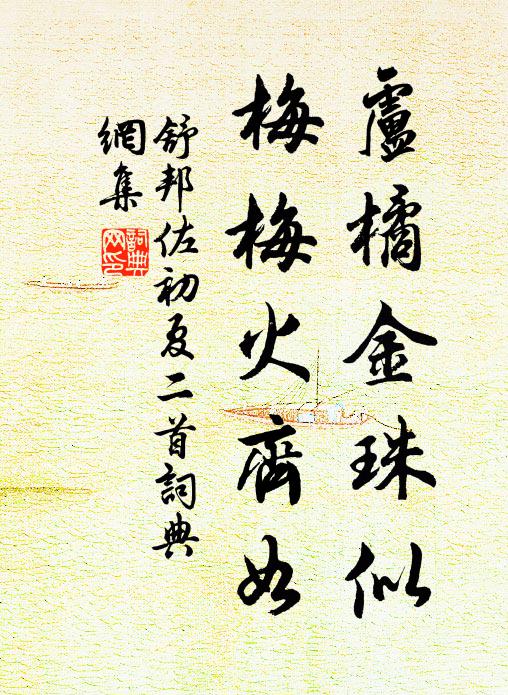 盧橘金珠似
梅梅火齊如
舒邦佐初夏二首詞典
網集
詞典網印